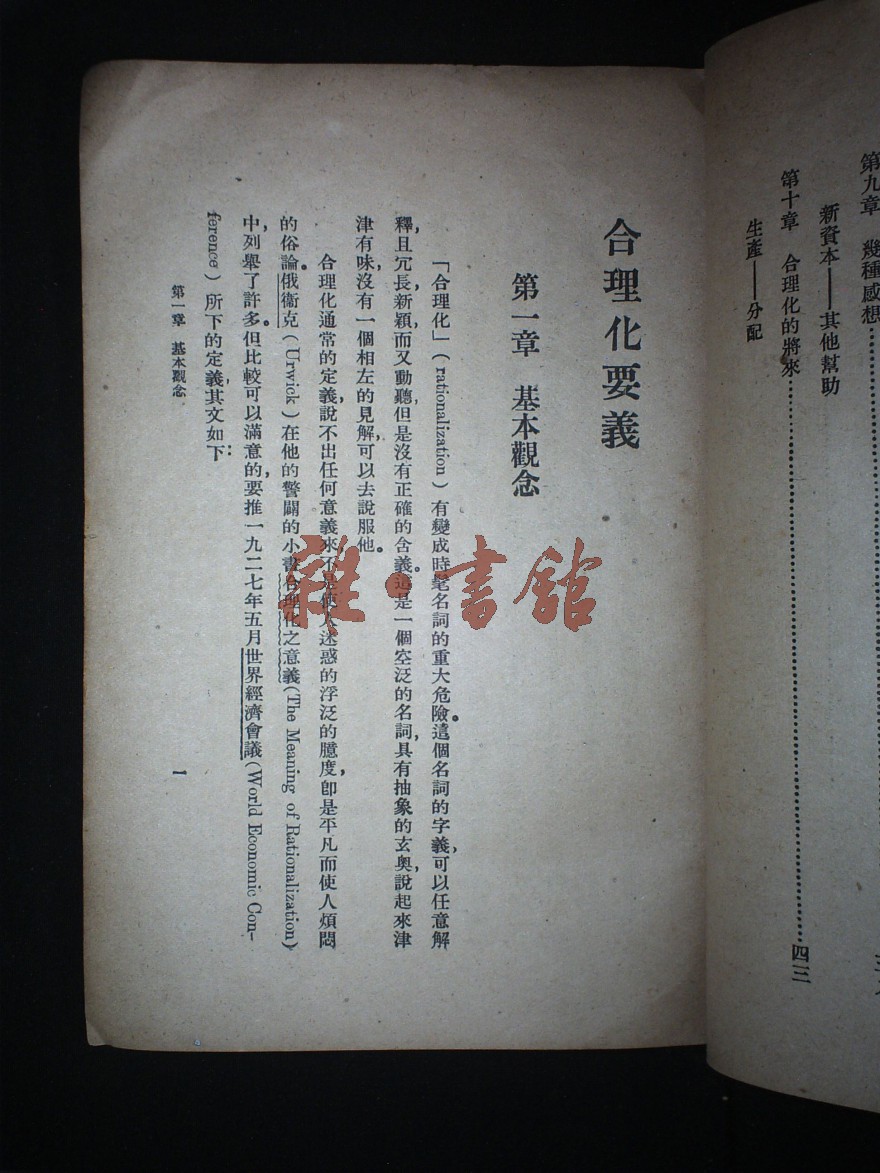 第九章　幾種感想
新資本——其他幫助
第十章　合理化的將來…………四三
生產——分配
合理化要義
第一章　基本觀念
「合理化」(rationalization)有變成時髦名詞的重大危險。這個名詞的字義，可以任意解
釋，且冗長，新穎，而又動聽，但是沒有正確的含義。這是一個空泛的名詞，具有抽象的玄奧，說起來津
津有味，沒有一個相左的見解，可以去說服他。
合理化通常的定義，說不出任何意義來，不是使人迷惑的浮泛的臆度，卽是平凡而使人煩悶
的俗論。俄衞克(Urwick)在他的警闢的小書合理化之意義(The Meaning of Rationalization)
中，列舉了許多。但比較可以滿意的，要推一九二七年五月世界經濟會議(World Economic Con-
ference)所下的定義，其文如下：
第一章　基本觀念
一
雜·書館